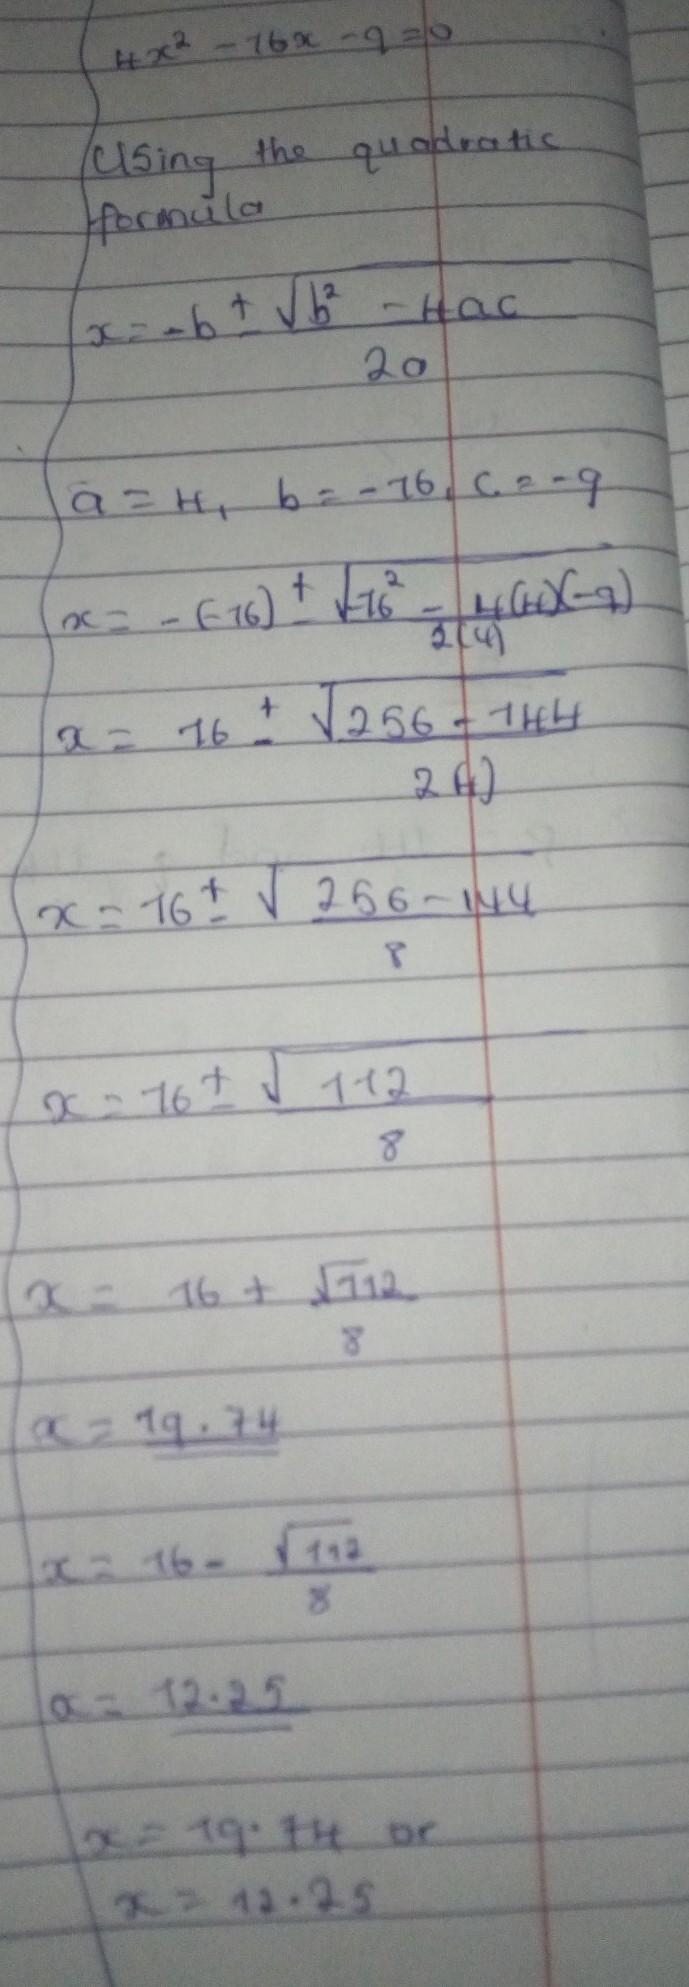 4x² - 16x - 9 = 0
Using the quadratic
formula
x = -b ± √b² - 4ac
2a
a = 4, b = -16, c = -9
x = -(-16) ± √-16² - 4(4)(-9)
2(4)
x = 16 ± √256 - 144
2(4)
x = 16 ± √256 - 144
8
x = 16 ± √112
8
x = 16 + √112
8
x = 19.74
x = 16 - √112
8
x = 12.25
x = 19.74 or
x = 12.25